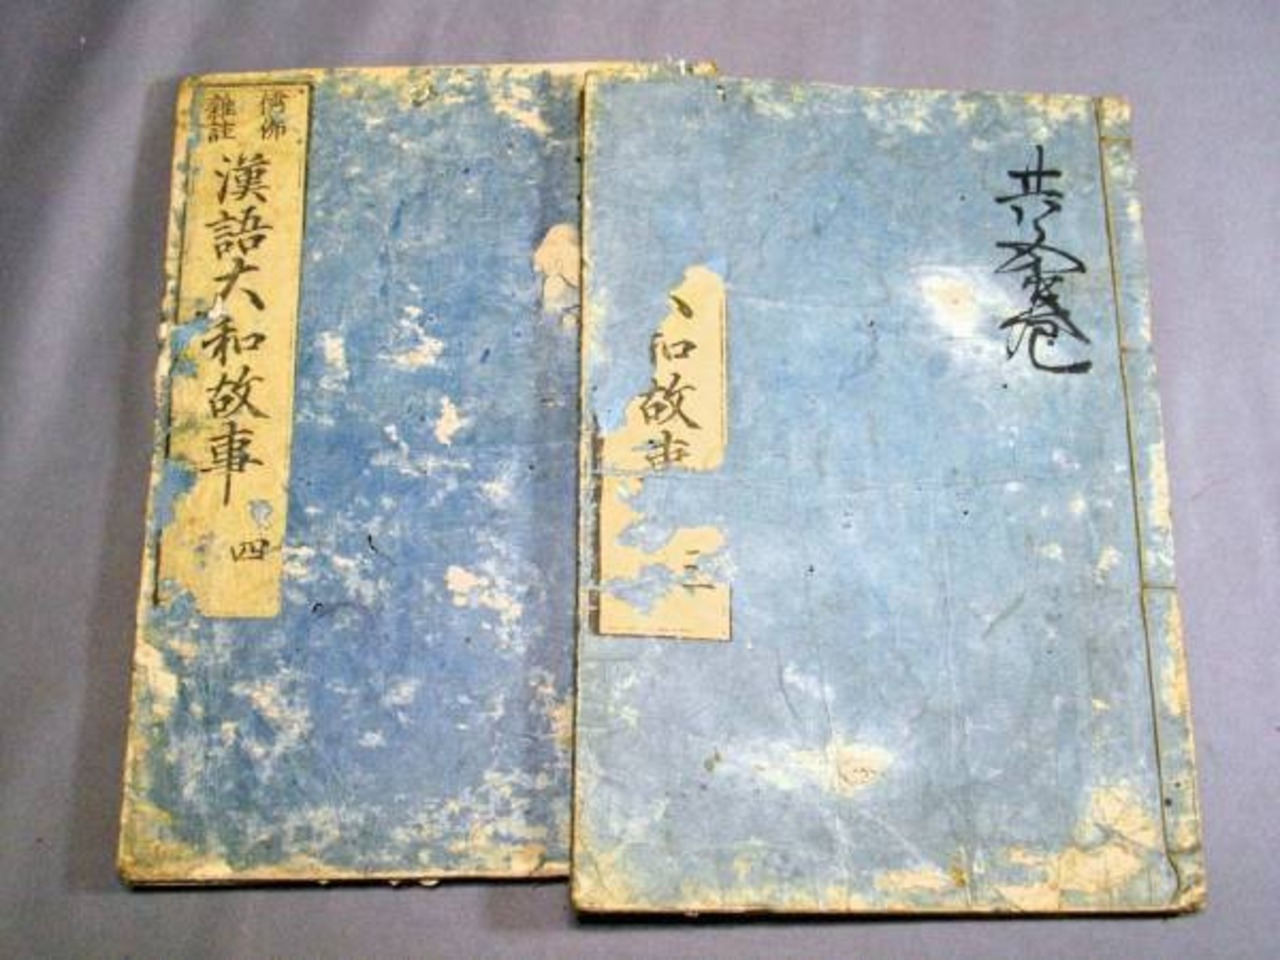 儒佛
雜註
漢語大和故事
四
和故事
三
共
巻